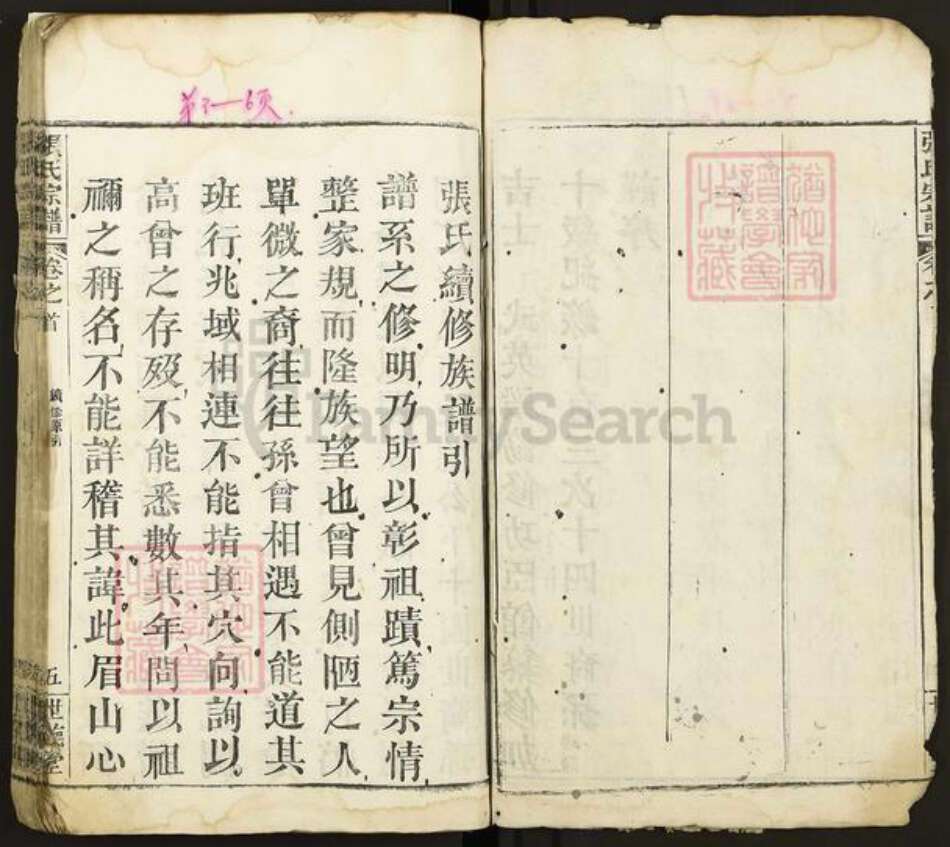 張氏宗譜
猶他家
譜學會
收藏
第5-6頁.
張氏續修族譜引
譜系之修明乃所以彰祖蹟篤宗情
整家規而隆族望也曾見側陋之人
單微之裔往往孫曾相遇不能道其
班行兆域相連不能指其穴向詢以
高曾之存歿不能悉數其年問以祖
禰之稱名不能詳稽其諱此眉山心
張氏宗譜
卷之首
五
世範堂
猶他家
譜學會
收藏
FamilySearch